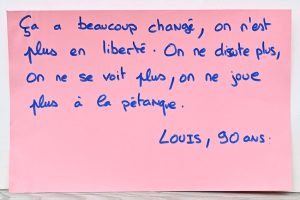 Ça a beaucoup changé, on n'est
plus en liberté. On ne discute plus,
on ne se voit plus, on ne joue
plus à la pétanque.
LOUIS, 90 ans.